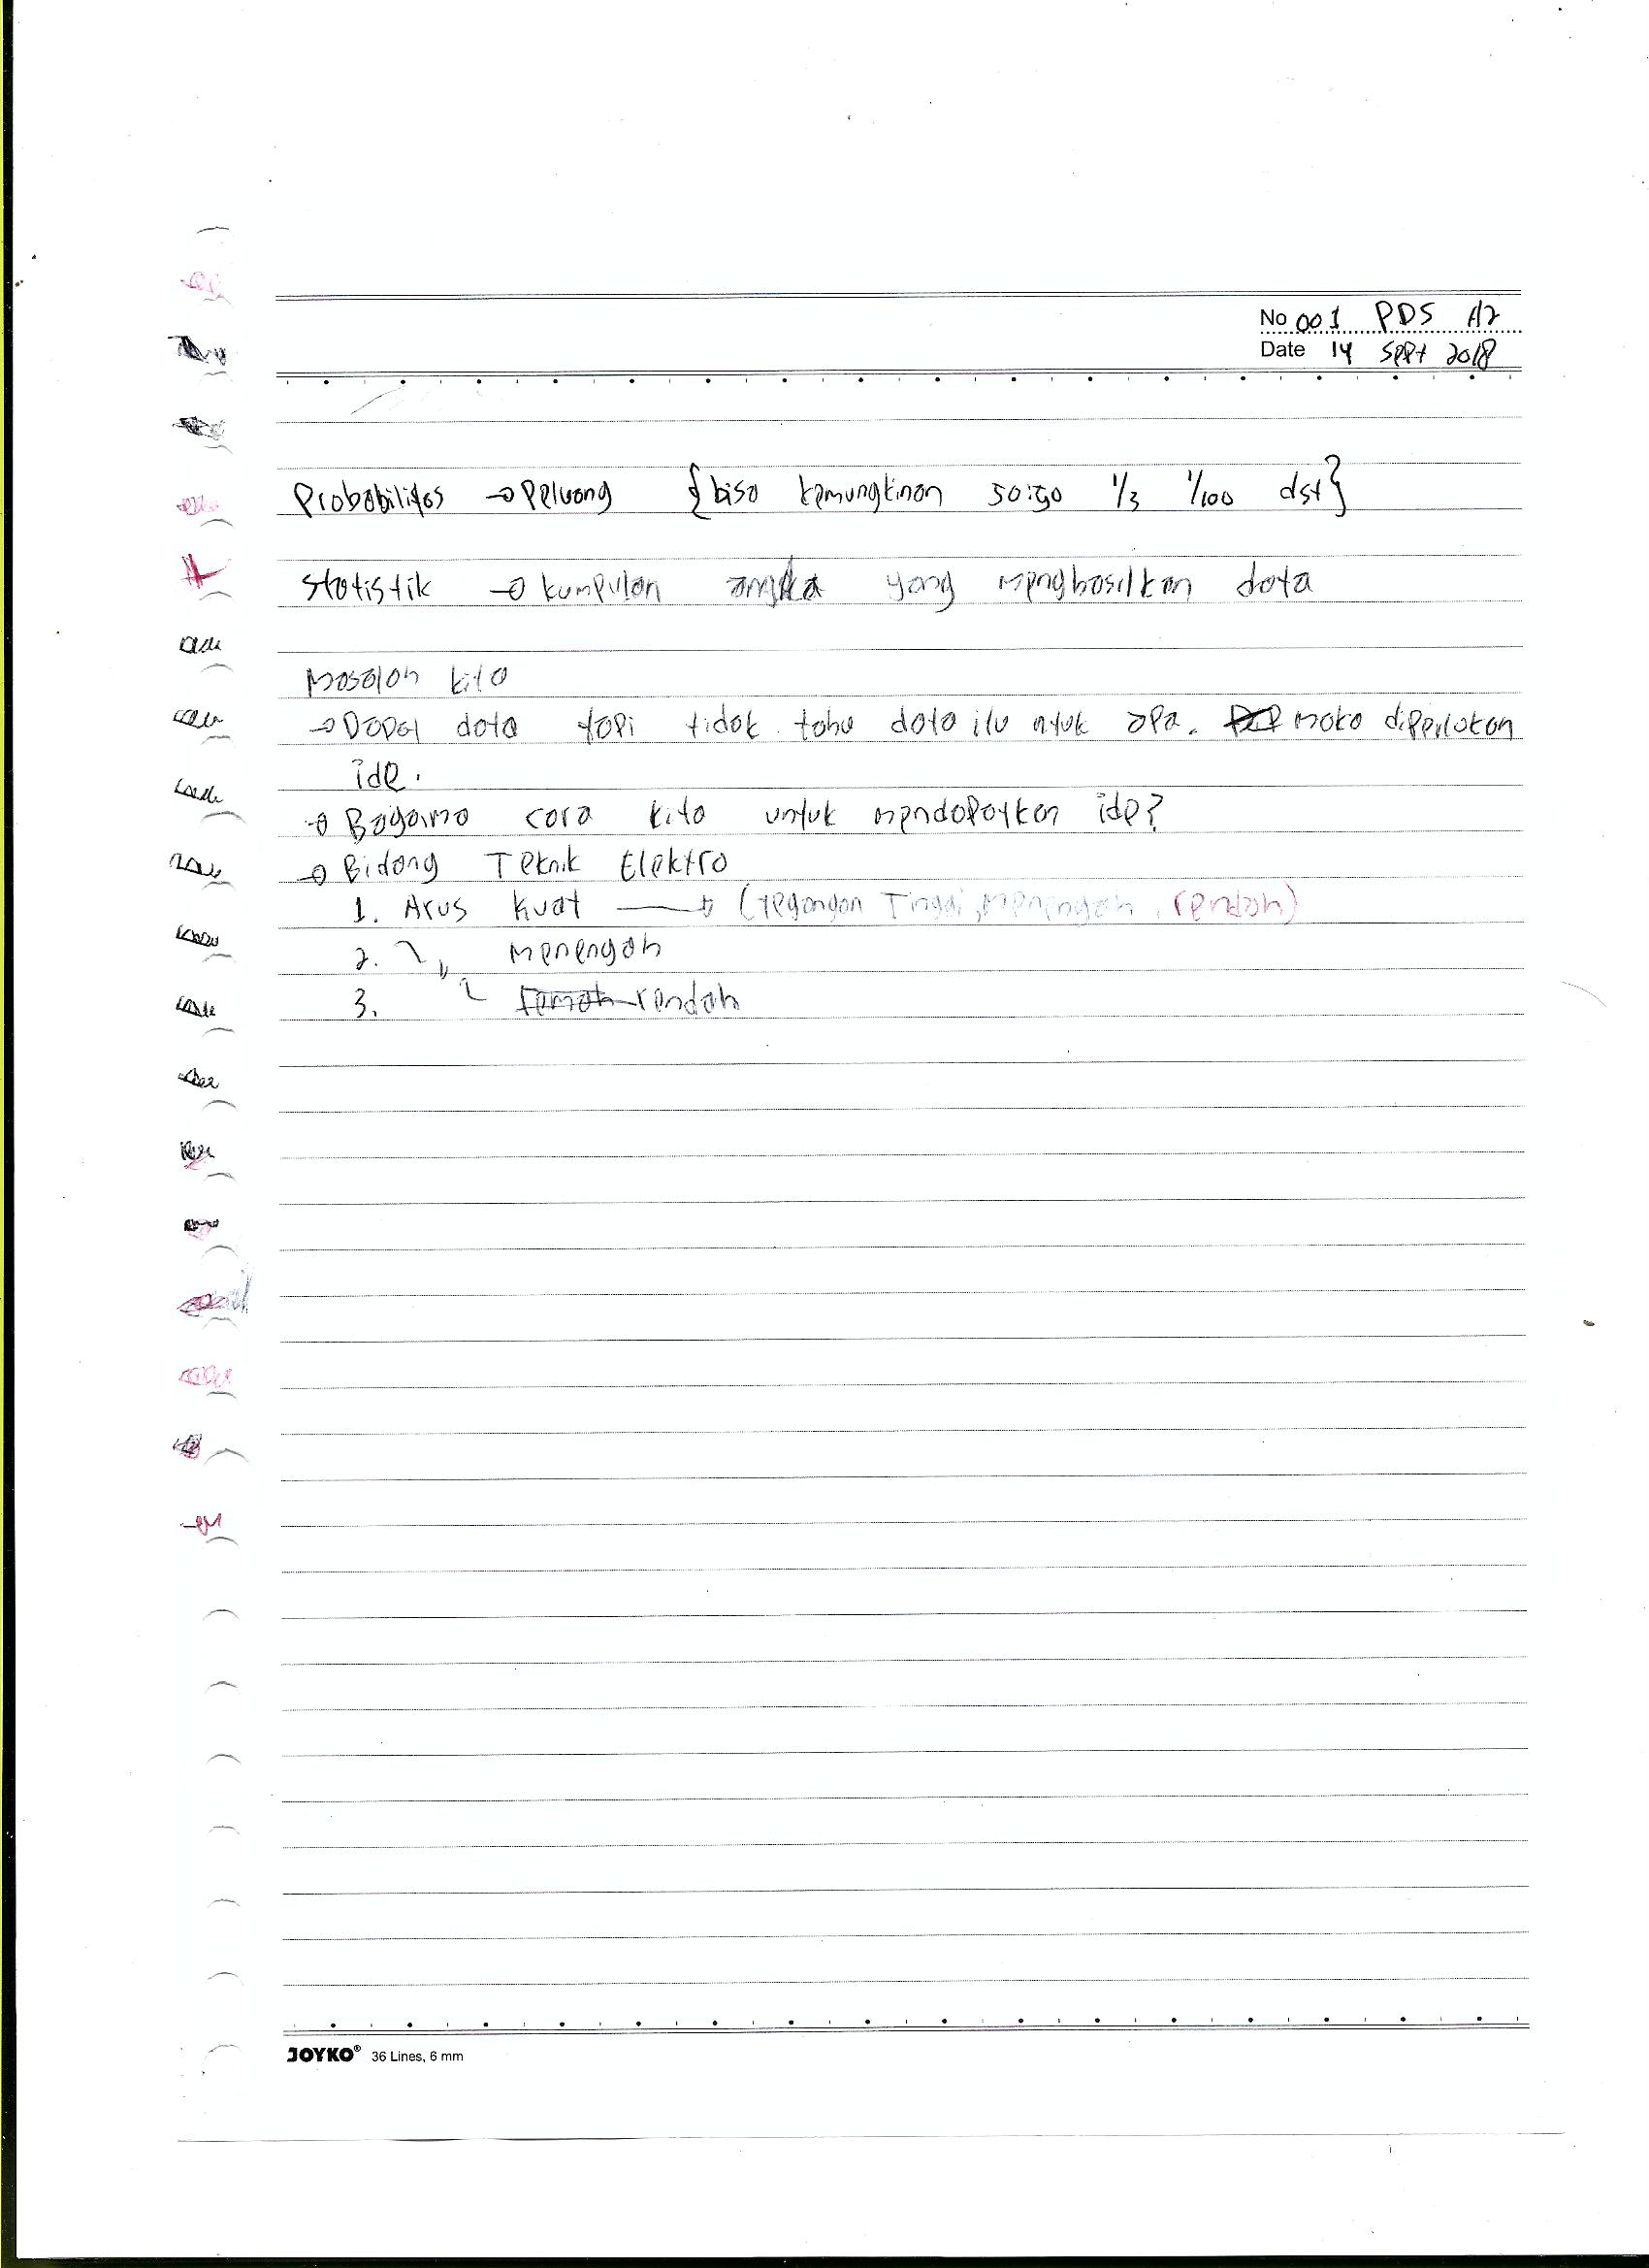 No 001 PDS A2
Date 14 Sept 2018
Probabilitas → Peluang {bisa kemungkinan 50:50 1/3 1/100 dst}
Statistik → kumpulan angka yang menghasilkan data
Masalah kita
→ Dapat data tapi tidak tahu data itu ntuk apa. maka diperlukan
ide.
→ Bagaima cara kita untuk mendapatkan ide?
→ Bidang Teknik Elektro
1. Arus kuat → (Tegangan Tinggi, Menengah, rendah)
2. 〃 Menengah
3. rendah
JOYKO® 36 Lines, 6 mm